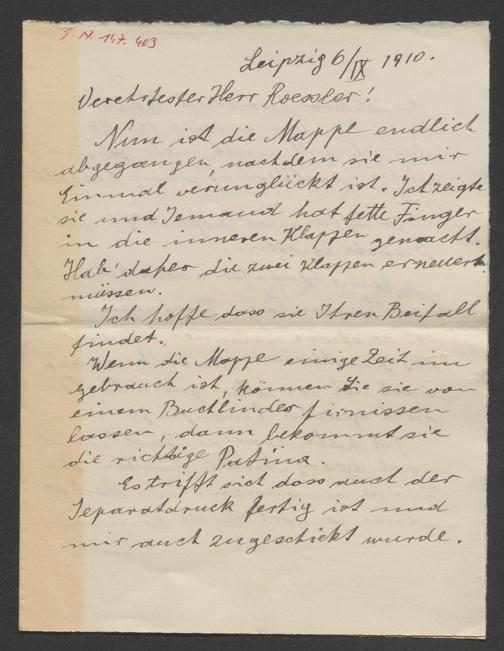 I. N. 147.403
Leipzig 6/IX 1910.
Verehrtester Herr Roessler!
Nun ist die Mappe endlich
abgegangen, nachdem sie mir
Einmal verunglückt ist. Ich zeigte
sie und Jemand hat fette Finger
in die inneren Klappen gemacht.
Hab' daher die zwei Klappen erneuern
müssen.
Ich hoffe dass sie Ihren Beifall
findet.
Wenn die Mappe einige Zeit im
gebrauch ist, können Sie sie von
einem Buchbinder firnissen
lassen, dann bekommt sie
die richtige Patina.
Es trifft sich dass auch der
Separatdruck fertig ist und
mir auch zugeschickt wurde.